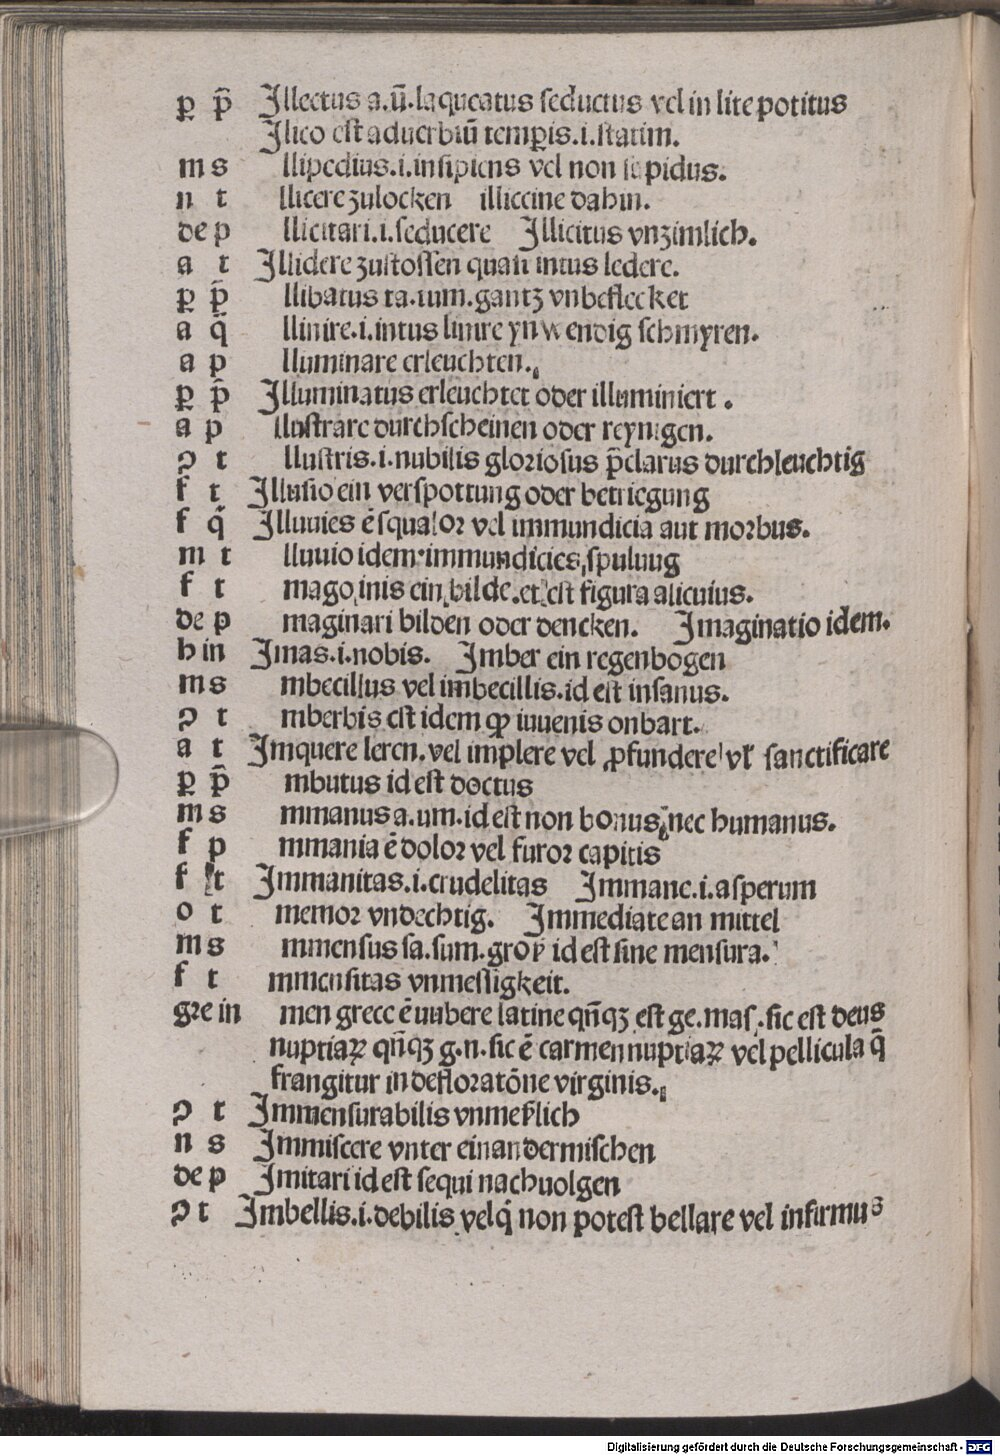 ꝑ p̄ Illectus a.ū.laqueatus seductus vel in lite potitus
Ilico est aduerbiū temꝑis.i.statim.
m s llipedius.i.insipiens vel non sapidus.
n t llicere zulocken illiccine dahin.
de p llicitari.i.seducere Illicitus vnzimlich.
a t Illidere zustossen quasi intus ledere.
ꝑ p̄ llibatus ta.tum.gantz vnbeflecket
a q̄ llinire.i.intus linire ynwendig schmyren.
a p lluminare erleuchten.
ꝑ p̄ Illuminatus erleuchtet oder illuminiert.
a p llustrare durchscheinen oder reynigen.
ꝯ t llustris.i.nubilis gloriosus p̄clarus durchleuchtig
f t Illusio ein verspottung oder betriegung
f q̄ Illuuies ē squalor vel immundicia aut morbus.
m t lluuio idem immundicies spulung
f t mago inis ein bilde.et est figura alicuius.
de p maginari bilden oder dencken. Imaginatio idem.
h in Imas.i.nobis. Imber ein regenbogen
m s mbecillus vel imbecillis.id est insanus.
ꝯ t mberbis est idem qꝫ iuuenis onbart.
a t Imquere leren.vel implere vel ꝓfundere vl' sanctificare
ꝑ p̄ mbutus id est doctus
m s mmanus a.um.id est non bonus nec humanus.
f p mmania ē dolor vel furor capitis
f t Immanitas.i.crudelitas Immane.i.asperum
o t memor vndechtig. Immediate an mittel
m s mmensus sa.sum.groß id est sine mensura.
f t mmensitas vnmessigkeit.
gre in men grece ē uubere latine qn̄qꝫ est ge.mas.sic est deus
nuptiaꝝ qn̄qꝫ g.n.sic ē carmen nuptiaꝝ vel pellicula q̄
frangitur in defloratōne virginis.
ꝯ t Immensurabilis vnmeßlich
n s Immiscere vnter einandermischen
de p Imitari id est sequi nachuolgen
ꝯ t Imbellis.i.debilis vel q̄ non potest bellare vel infirmus
Digitalisierung gefördert durch die Deutsche Forschungsgemeinschaft - DFG